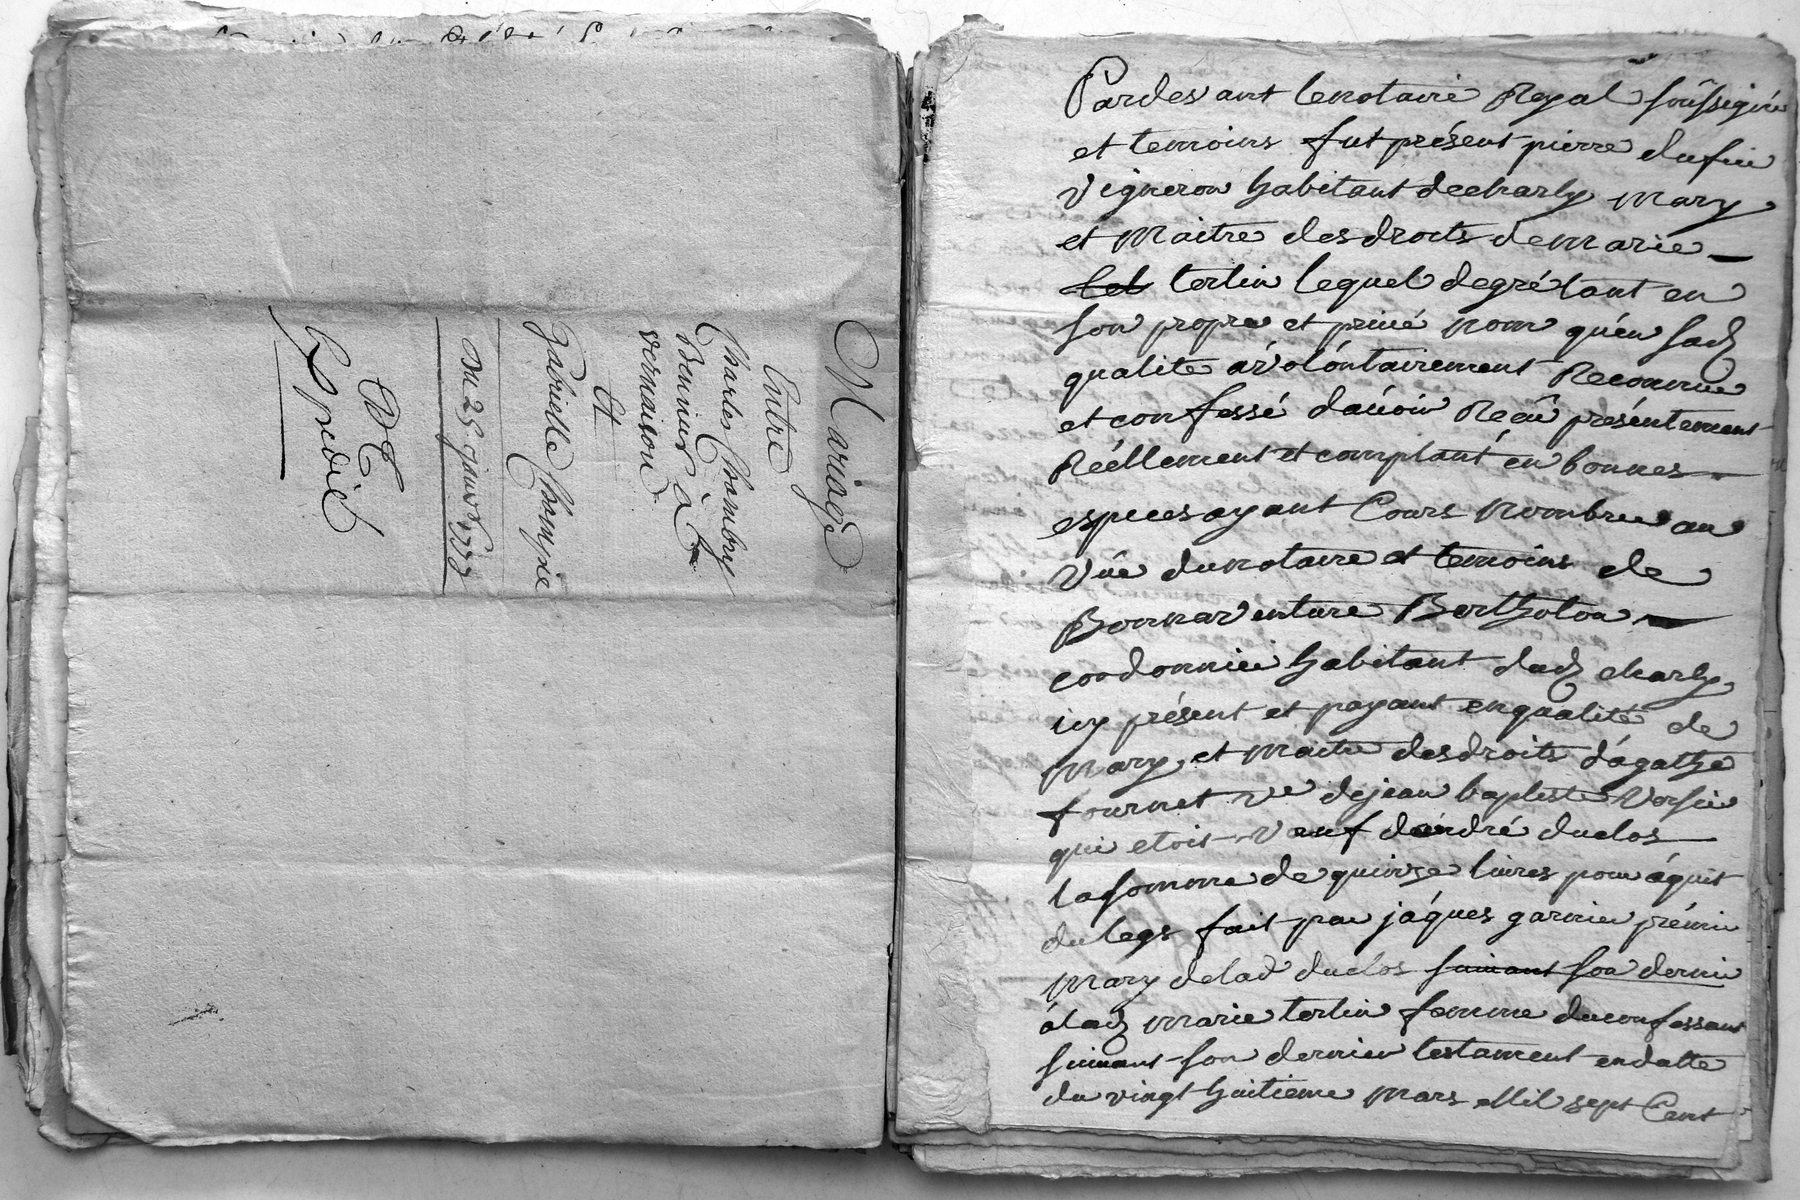 Mariage
Entre
Charles Chambry
vernaison
Et
Gabrielle
du 25
Expedié
Pardevant lenotaire Royal soussigné
et temoins fut présent pierre dufin
vigneron habitant decharly mary
et maitre desdroits demarie
terlin lequel degré tant en
son propre et privé nom qu'en sad
qualite avolóntairement Reconnu
et confessé d'avoir Reçû préséntement
Réellement et comptant en bonnes
especes ayant Cours nombree au
vûe dunotaire et temoins de
Bonnaventure Bertholon
cordonnier habitant dud charly
icy présent et payant enqualité de
mary et maitre desdroits d'ágathe
fournet ve dejean baptiste
qui etoit veuf d'andré duclos
lasomme de quinze livres pour áquit
dulegs fait par jáques garnier prémier
mary delad duclos suivant son dernier
álad marie terlin femme duconfessant
suivant son dernier testament endatte
du vingt huitieme mars Mil sept Cent